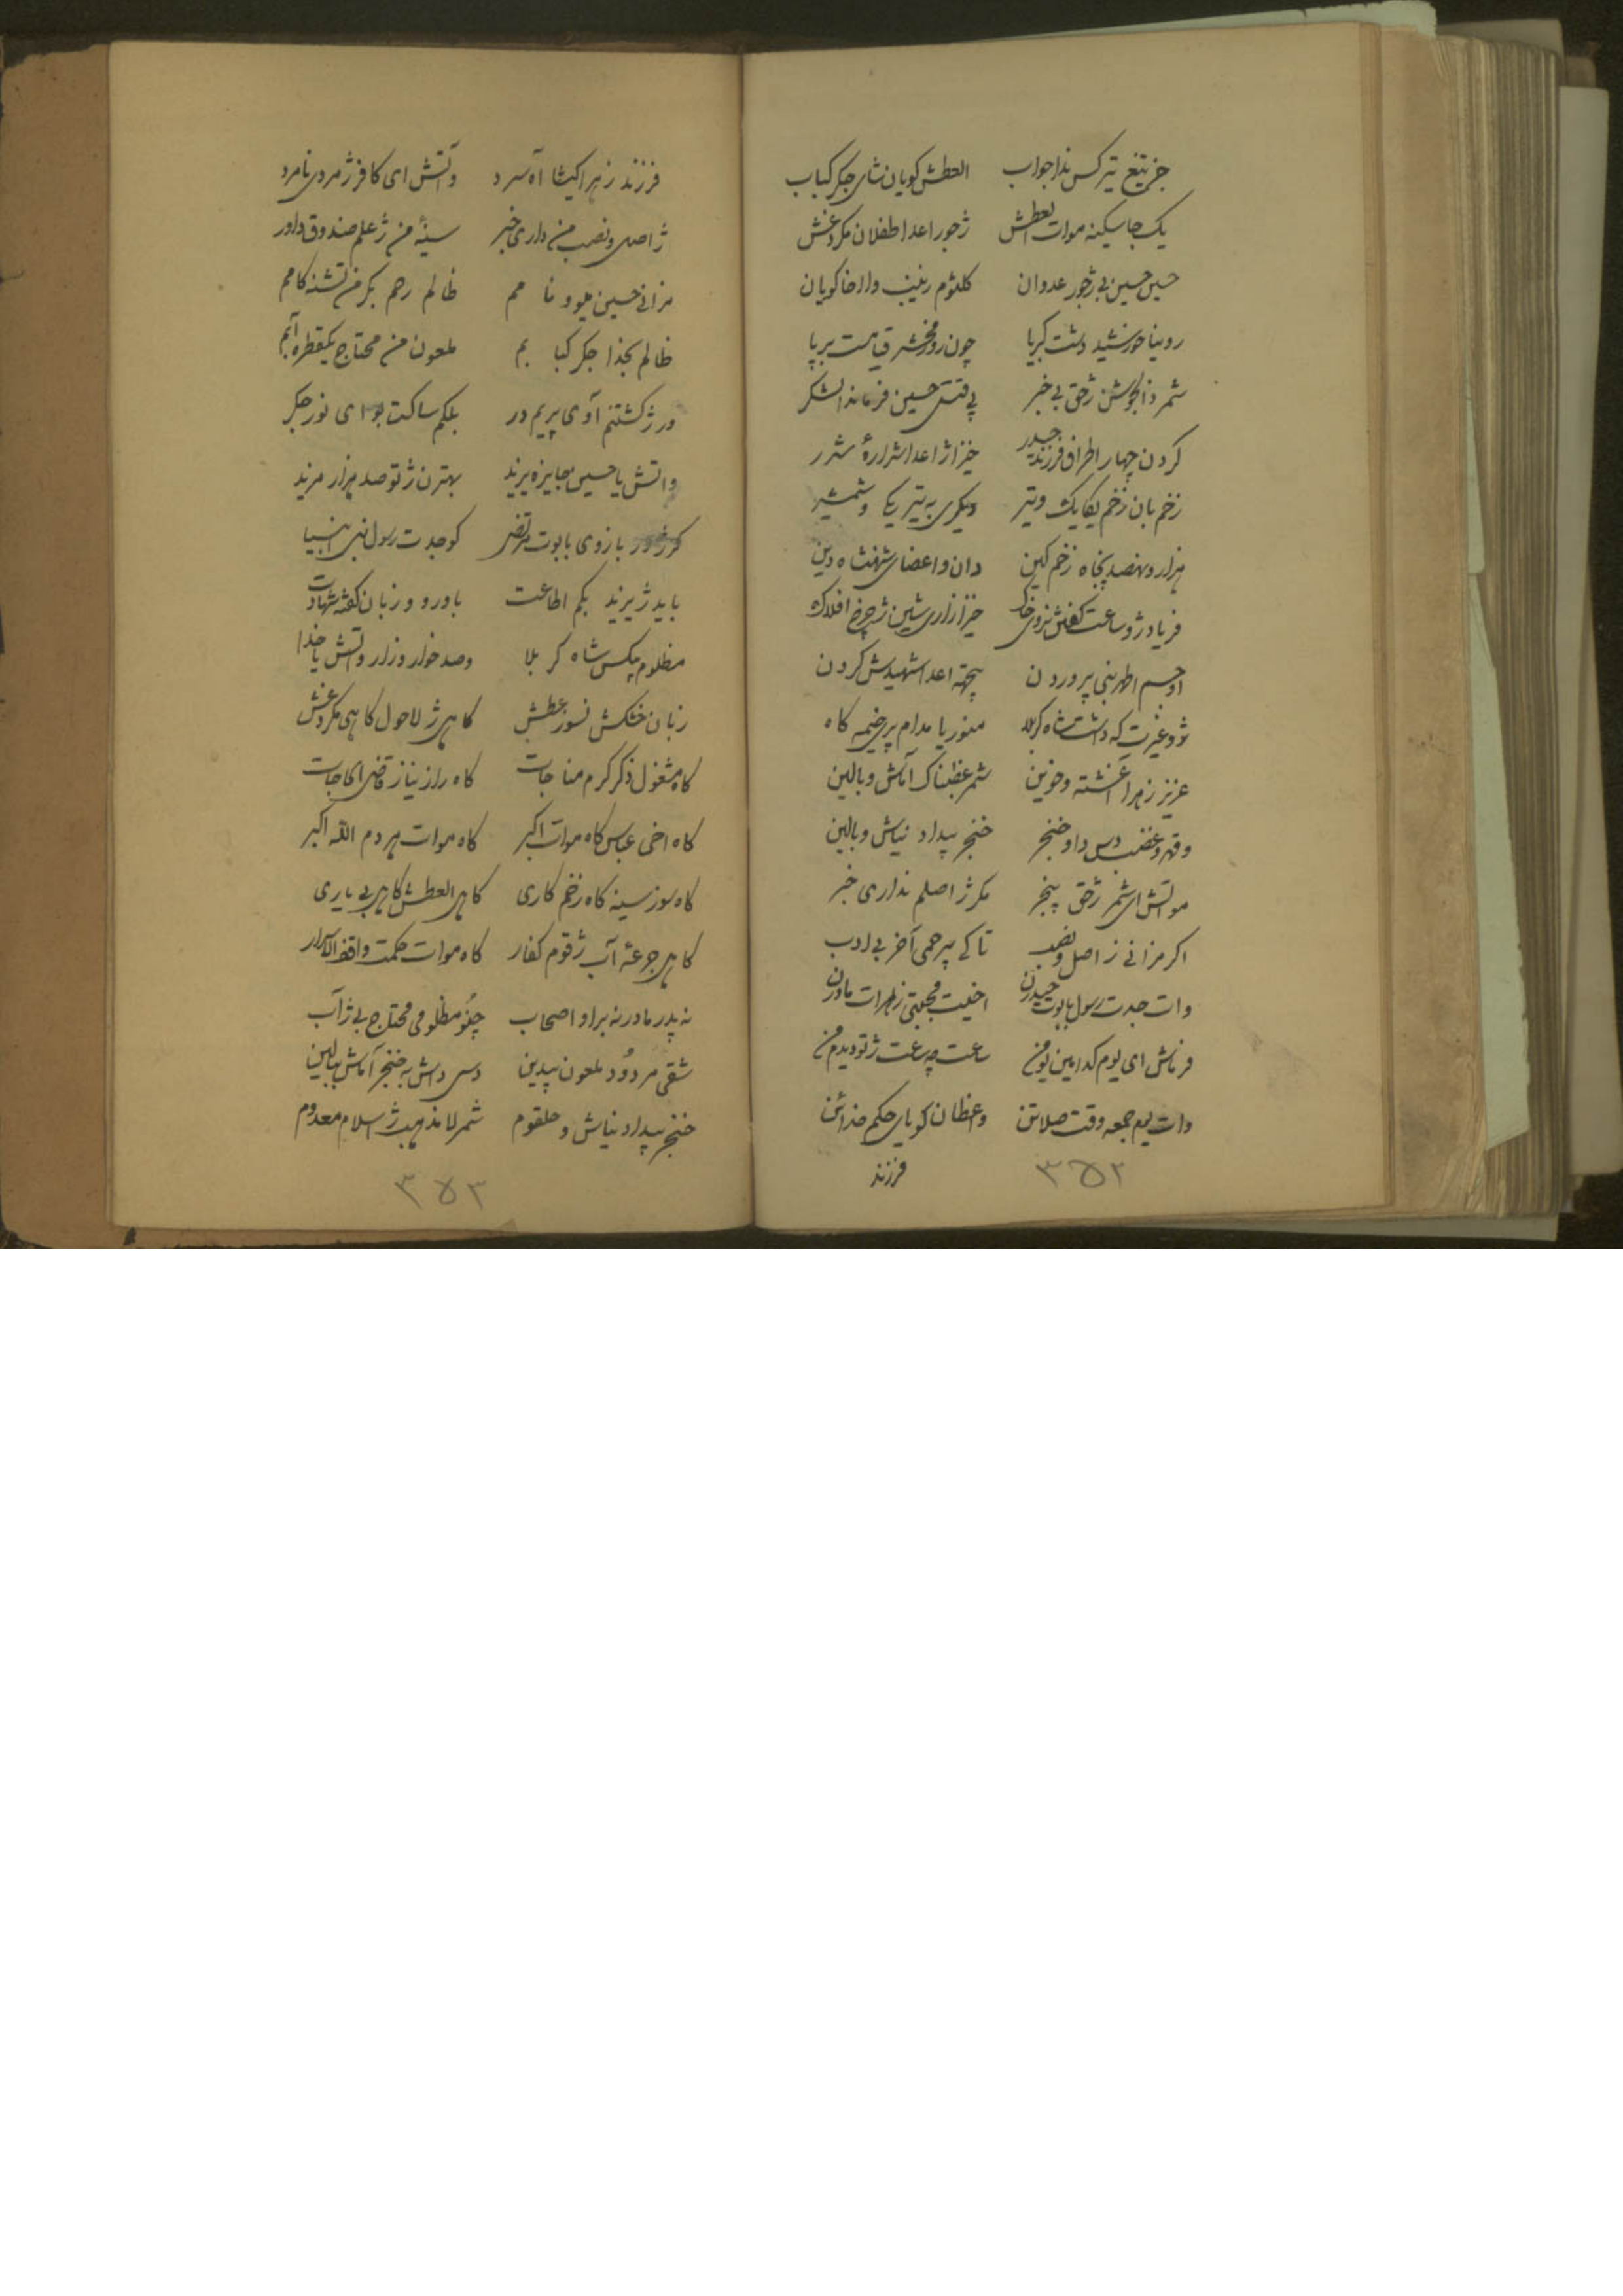 جز تیغ تیر کس ندا جواب العطش کویان نشای جکر کباب
یک جا سکینه موات العطش ژجور اعدا طفلان مکردغش
حسین حسین بی ژجور عدوان کلثوم زینب والاخا کویان
رونیا خورشید دشت کربلا چون روز محشر قیامت برپا
شمر ذالجوشن ژحق بی خبر پی قتل حسین فرماندا لشکر
کردن چهار اطراف فرزند حیدر خیزا ژ اعدا شرارهٔ شرر
زخم بان زخم یکایک و تیر دیکری به تیر یکی و شمشیر
هزار و نهصد پنجاه زخم کین دان و اعضای شهنشاه دین
فریاد ژو ساعت کفتش نروی خاک خیزا زاری شین ژ چرخ افلاک
او جسم اطهر نبی پروردن پیچته اعدا شهیدش کردن
ژو غیرت که داشت شاه کربلا منوریا مدام پری خیمه کاه
عزیز زهرا آغشته و خوین شمر غظبناک آماش و بالین
و قهر و غضب دس دا و خنجر خنجر بیداد نیاش و بالین
مواتش ای شمر ژحق بیخبر مکر ژ اصلم نداری خبر
اکر مزانی ز اصل و نصب تا کی بیرحمی آخر بی ادب
وات جدت رسول بابوت حیدرن اخیت مجتبی زهرات مادرن
فرماش ای یوم کدامین یومن ساعت چه ساعت ژتو دیدم من
وات یوم جمعه وقت صلاتن واعظان کویای حکم خدائن
فرزند
٣٥٢
فرزند زهرا کیشا آه سرد واتش ای کافر ژمردی نامرد
ژ اصل و نصب من داری خبر سینهٔ من ژعلم صندوق داور
مزانی حسین میوو نا مم ظالم رحم بکر من تشنه کامم
ظالم بخدا جکر کبا بم ملعون من محتاج یکقطره آبم
ور ژ کشتنم آوی پریم در بلکم ساکت بو ای نور جکر
واتش یا حسین جایزه یزید بهترن ژتو صد هزار مزید
بازوی بابوت مرتضی کو جدت رسول نبی انبیا
باید ژ یزید بکم اطاعت باورو و زبان کفته شهادت
مظلوم بیکس شاه کربلا وصد خوار و زار واتش یا خدا
زبان خشکش نسوز عطش کاهی ژ لاحول کاهی مکردغش
کاه مشغول ذکر کرم مناجات کاه راز نیاز قاضی الحاجات
کاه اخی عباس کاه موات اکبر کاه موات هردم الله اکبر
کاه سوز سینه کاه زخم کاری کاهی العطش کاهی بی یاری
کاهی جرعهٔ آب ژ قوم کفار کاه موات حکمت واقف الاسرار
نه پدر مادر نه براو اصحاب چنو مظلومی محتاج بی ژ آب
شقی مردود ملعون بیدین دس داش به خنجر آماش ببالین
خنجر بیداد نیاش و حلقوم شمر لامذهب ژ اسلام معدوم
٣٥٣